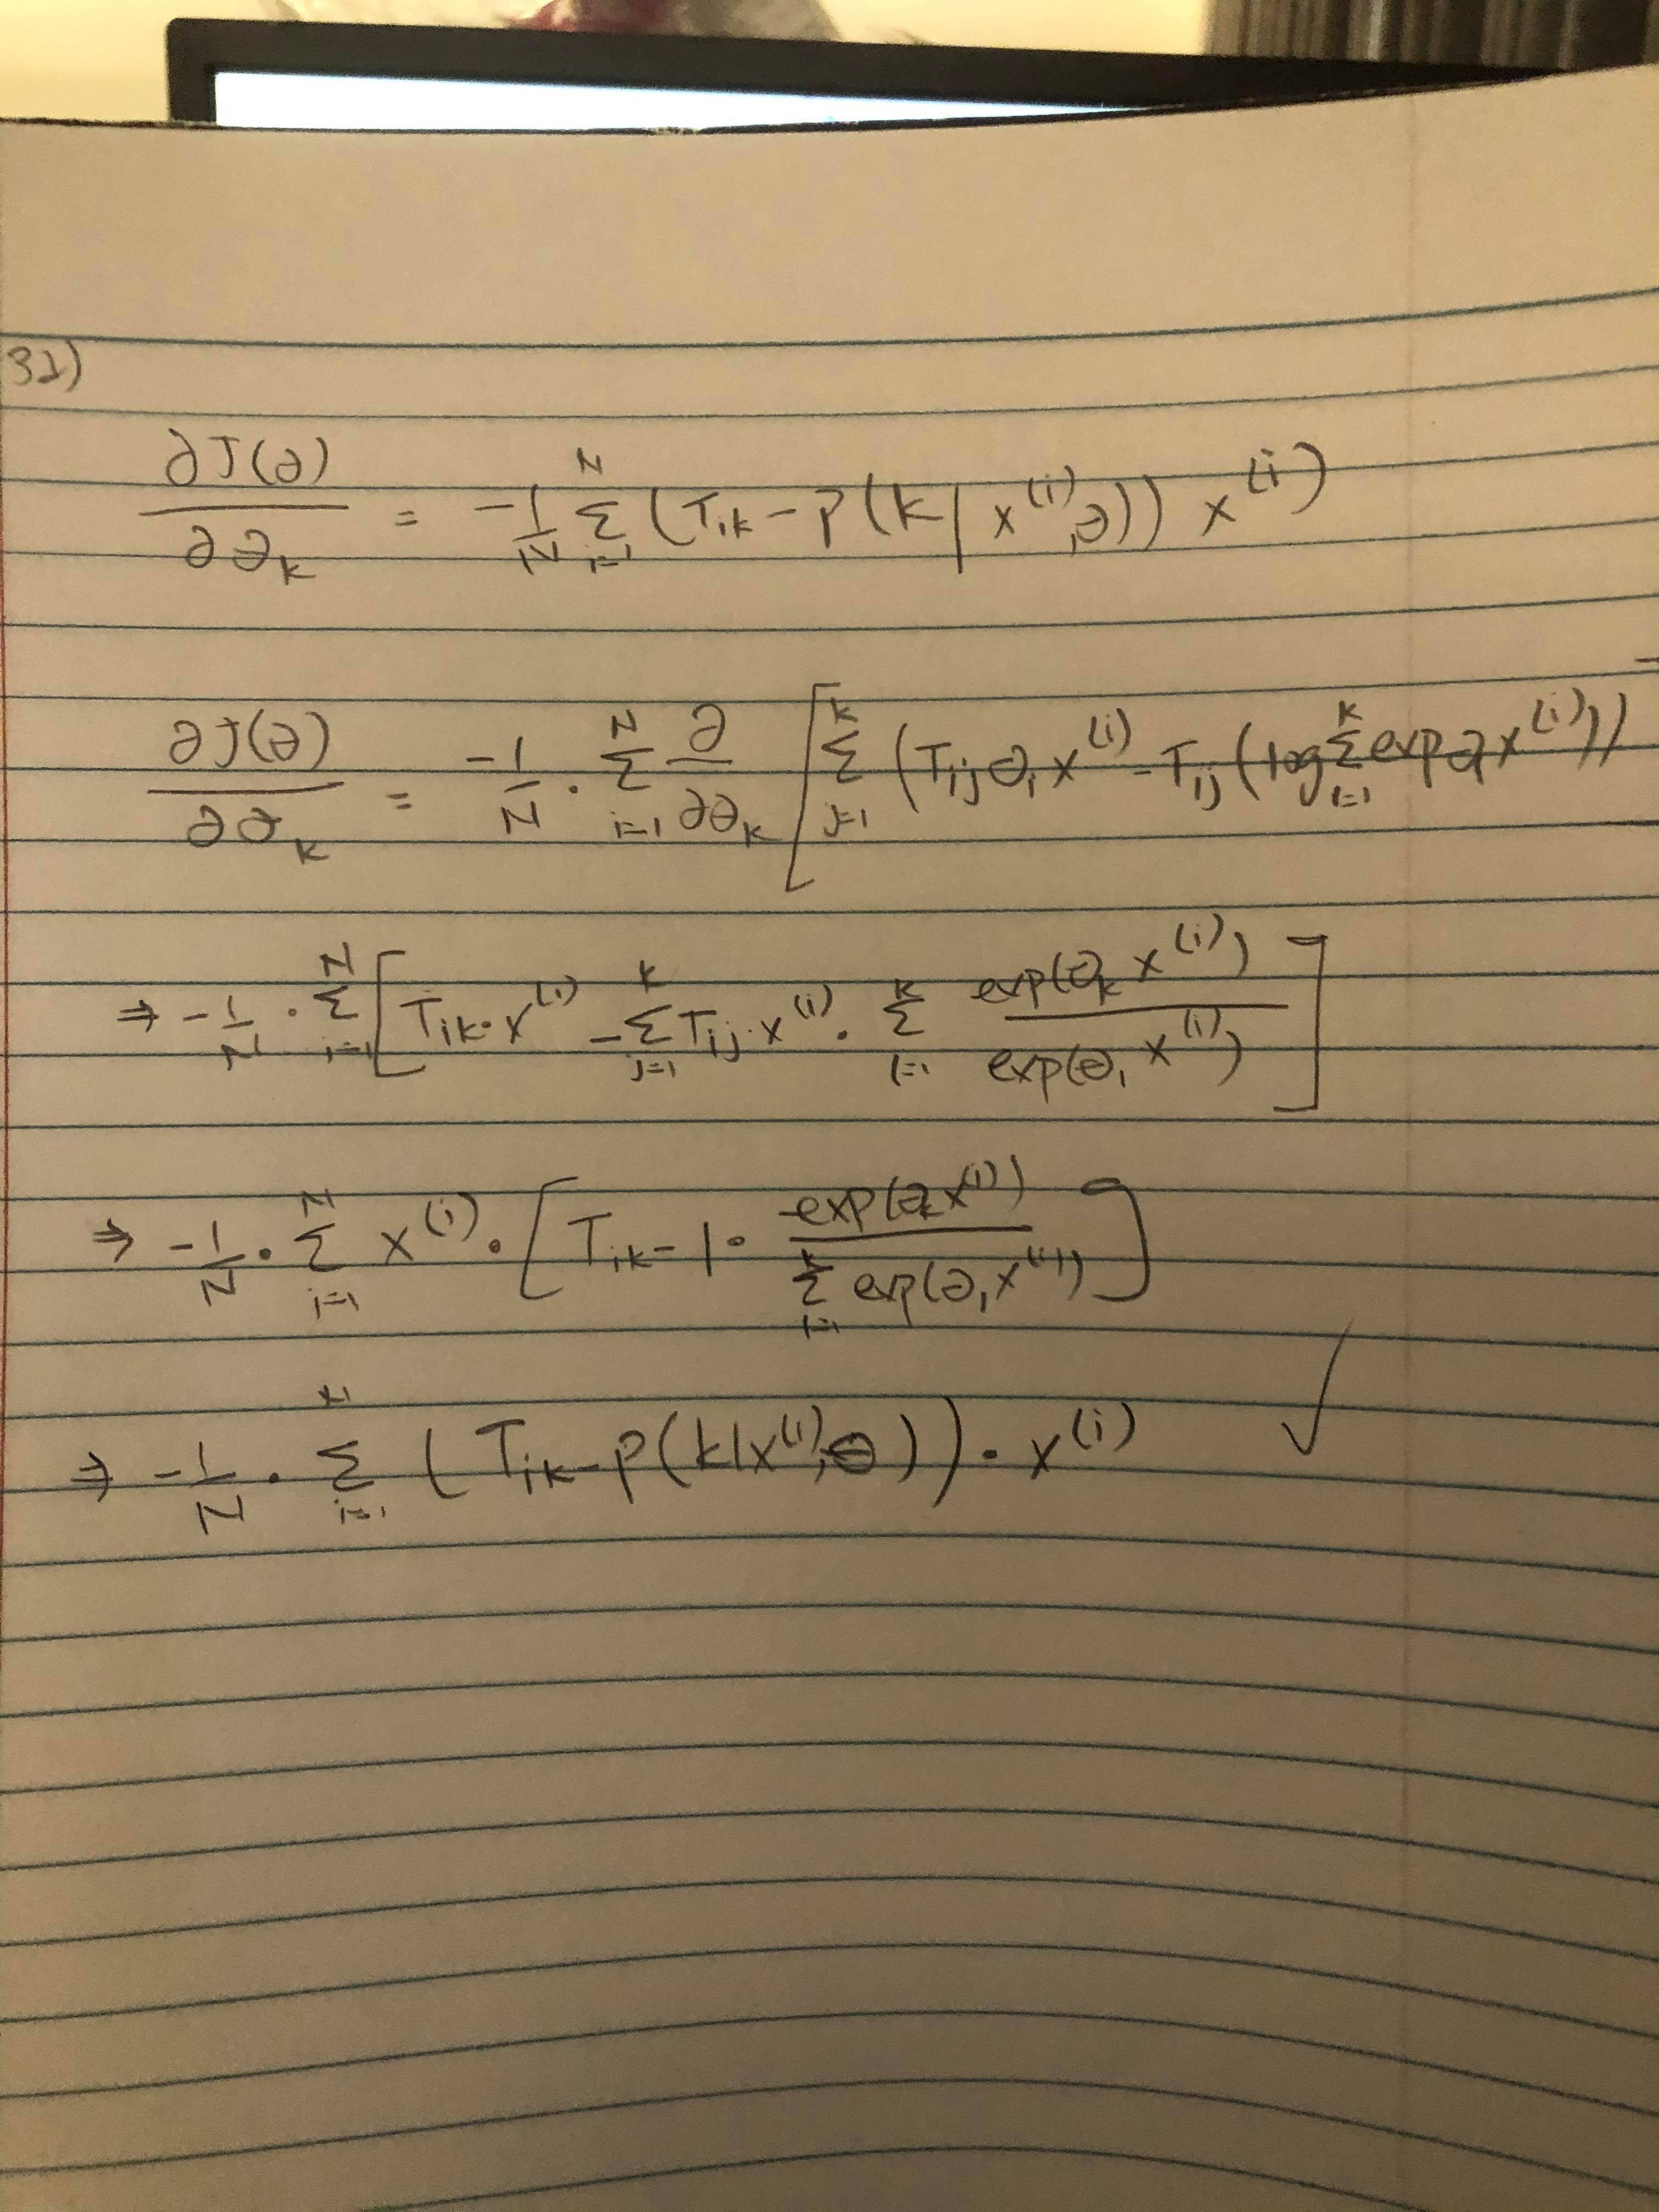 32)
∂J(∂)/∂∂ₖ = -1/N Σ_{i=1}^{N} (T_{ik} - P(k | x^{(i)}, ∂)) x^{(i)}
∂J(∂)/∂∂ₖ = -1/N · Σ_{i=1}^{N} ∂/∂∂ₖ [ Σ_{j=1}^{k} (T_{ij} θ_j x^{(i)} - T_{ij} (log Σ_{l=1}^{k} exp θ_l x^{(i)}))
⇒ -1/N · Σ_{i=1}^{N} [ T_{ik} · x^{(i)} - Σ_{j=1}^{k} T_{ij} · x^{(i)} · Σ_{l=1}^{k} exp(θ_k x^{(i)}) / exp(θ_l x^{(i)}) ]
⇒ -1/N · Σ_{i=1}^{N} x^{(i)} · [ T_{ik} - 1 · exp(∂_k x^{(i)}) / Σ_{l=1}^{k} exp(∂_l x^{(i)}) ]
⇒ -1/N · Σ_{i=1}^{N} ( T_{ik} - P(k | x^{(i)}, θ)) · x^{(i)} ✓